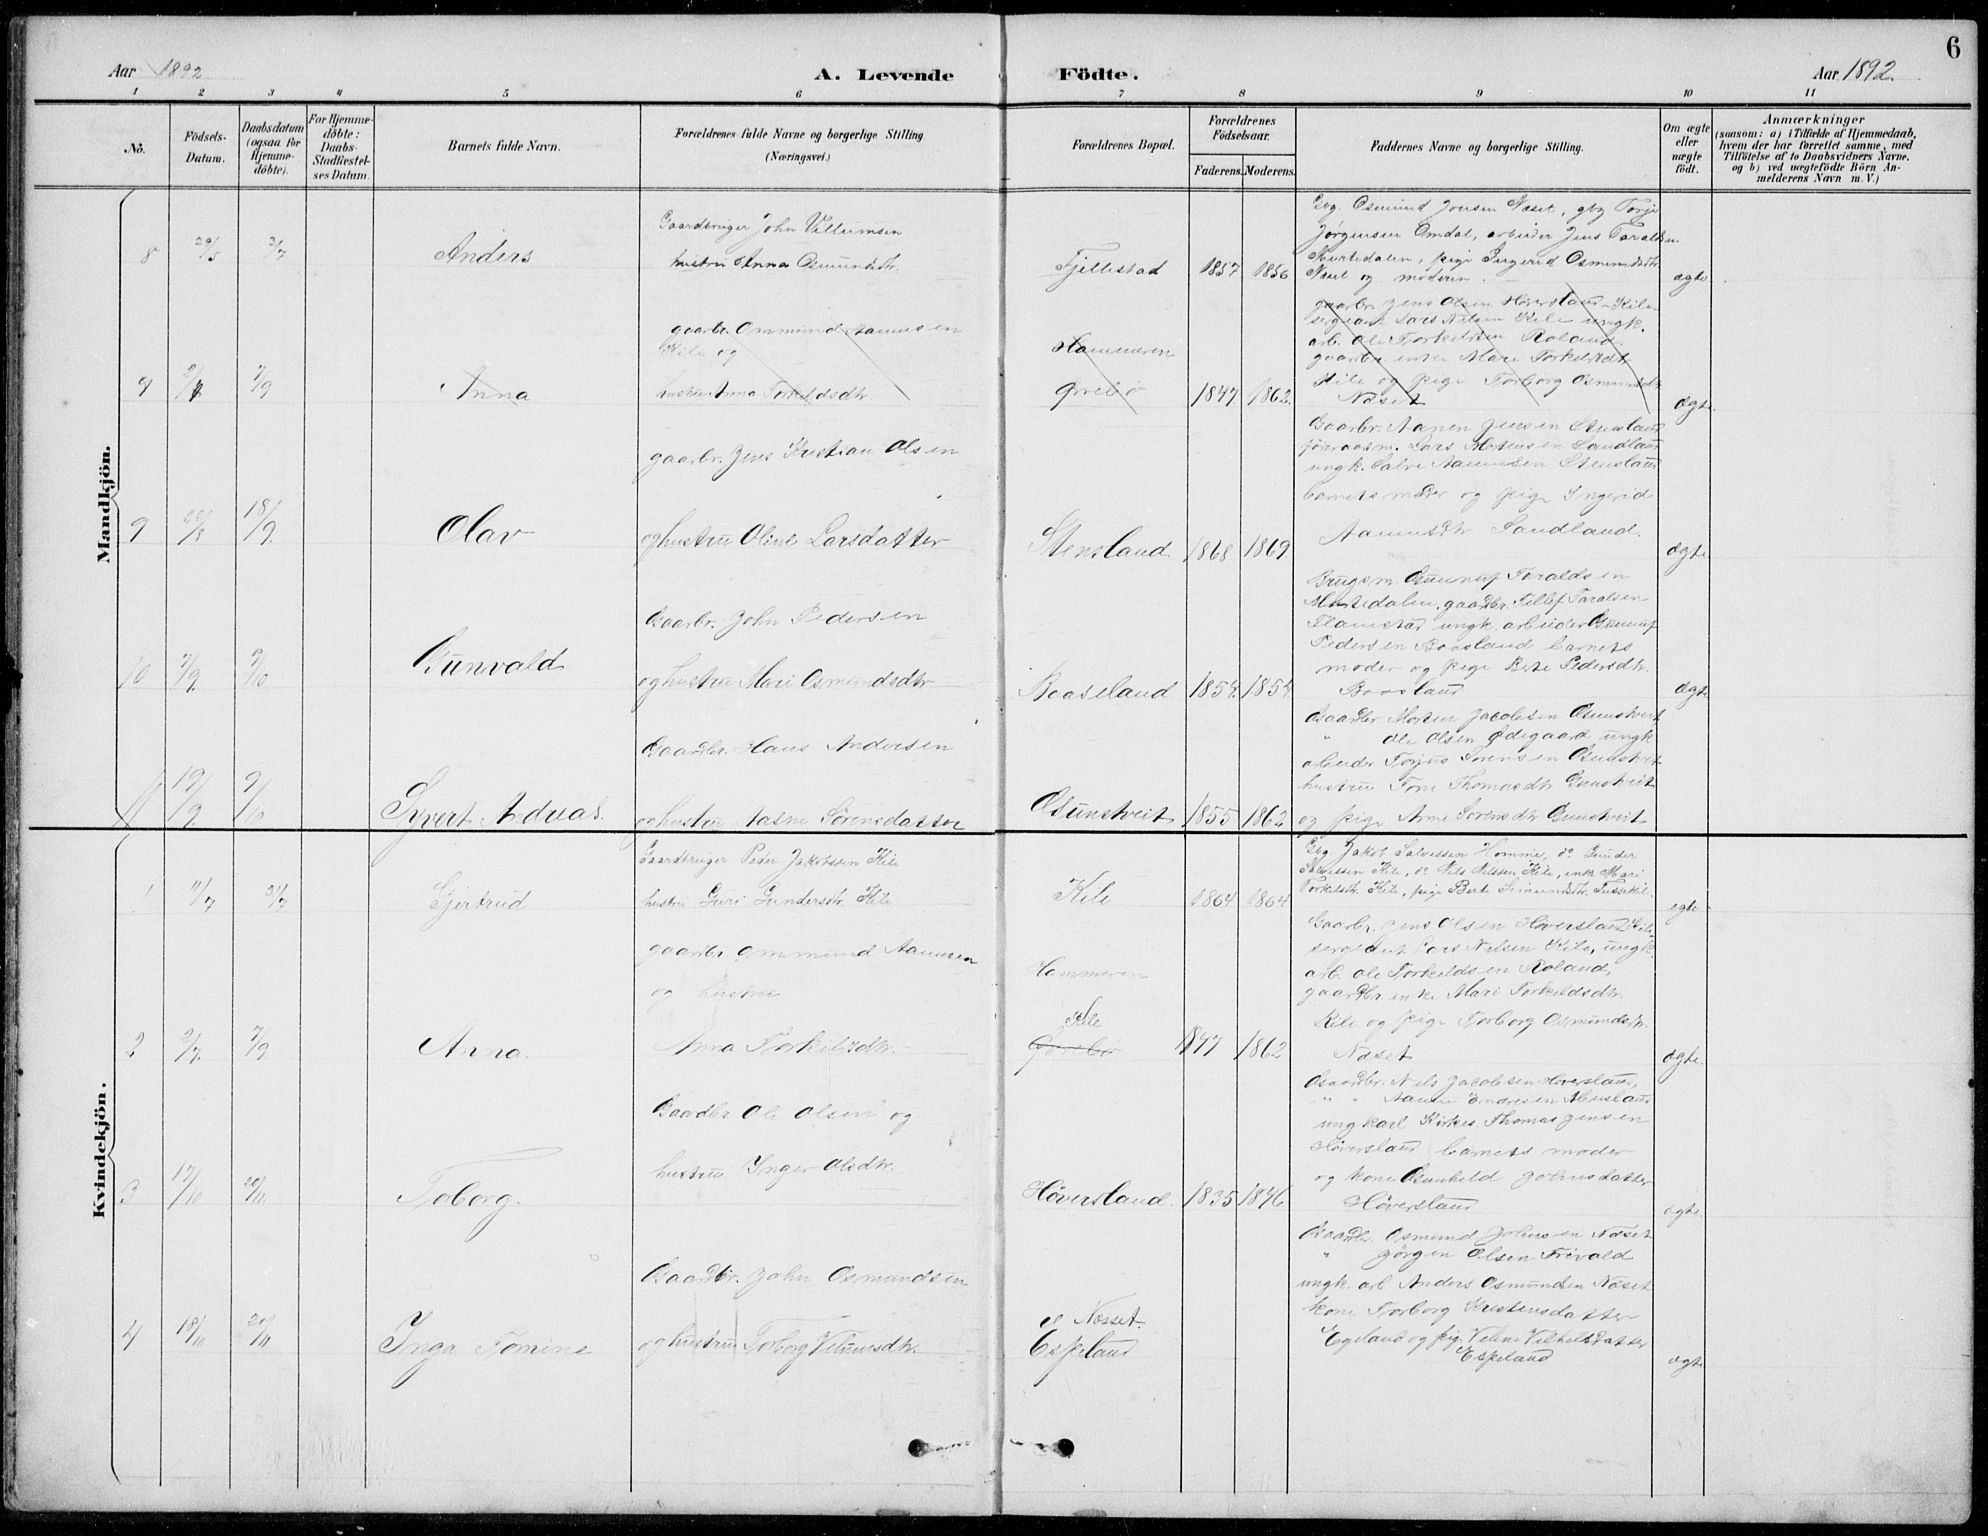 6
Aar 1892
A. Levende
Födte.
Aar 1892.
1 2 3 4 5 6 7 8 9 10 11
No.
Födsels-
Datum.
Daabsdatum
(ogsaa for
Hjemme-
döbte).
For Hjemme-
döbte:
Daabs-
Stadfæstel-
ses Datum.
Barnets fulde Navn.
Forældrenes fulde Navne og borgerlige Stilling
(Næringsvei.)
Forældrenes Bopæl.
Forældrenes
Födselsaar.
Faderens. Moderens.
Faddernes Navne og borgerlige Stilling.
Om ægte
eller
uægte
födt.
Anmærkninger
(saasom: a) i Tilfælde af Hjemmedaab,
hvem der har forrettet samme, med
Tilföielse af to Daabsvidners Navne,
og b) ved uægtefödte Börn An-
melderens Navn m. V.)
Mandkjön.
8 29/5 3/7 Anders
Gaardbruger John Villumsen
hustru Anna Osmundsdtr.
Fjellestad 1857 1856
Gbg. Osmund Jonsen Næset, gbg Torje
Jørgensen Omdal, arbeider Jens Taraldsen
Murtedalen, pige Ingerid Osmundsdtr
Næset og moderen.
ægte
9 7/9 Anna
gaarbr. Ommund Aanunsen
Kile og
hustru Anna Torkildsdtr.
Hammeren
Ørebø 1847 1862.
gaarbr. Jens Olsen Höversland-Kile
sergeant Lars Nilsen Kile ungk.
arb. Ole Torkildsen Roland
gaarbr enke Mari Torkildsdtr
Kile og pige Torborg Osmundsdtr
Næset
ægte.
9 18/9 Olav
gaarbr. Jens Kristian Olsen
og hustru Oline Larsdatter
Stensland 1868 1869
Gaarbr. Aanen Jensen Stensland
ungk. Salve Aanunsen Stensland
barnets moder og pige Ingerid
Aanunsdtr Sandland.
ægte
10 7/9 9/10 Gunvald
Gaarbr. John Pedersen
og hustru Mari Osmundsdtr
Boaseland 1854. 1854.
Brugsm. Gunnuf Taraldsen
Murtedalen, gaardbr. Tellef Taralsen
Flamstad ungk. arbeider Gunnuf
Pedersen Boasland barnets
moder og pige Berte Pedersdtr.
Boasland
ægte
11 19/9 9/10 Syvert Andreas.
Gaardbr. Hans Andersen
og hustru Aasne Sörensdatter
Gunstveit 1855 1862
Gaardbr. Morten Jacobsen Gunstveit
" Ole Olsen Ødegaard ungk
arbeider Torjus Sörensen Gunstveit
hustru Tone Thomasdtr Gunstveit
og pige Anne Sörensdtr Gunstveit
Kvindekjön.
1 11/7 31/7 Gjertrud
Gaardbruger Peder Jakobssen Kile
hustru Guri Gundersdtr. Kile
Kile 1864 1864
Gbg. Jakob Salvessen Homme, do Gunder
Salvessen Kile, do Nils Nilssen Kile, enke Mari
Torkilsdtr. Kile, pige Berte Simundsdtr. Tussekil.
egte
2 2/7. 7/9 Anna.
gaardbr Ommund Aanunsen
og hustru
Anna Torkildsdtr.
Hammeren
Kile
Ørebø 1847 1862
Gaarbr. Jens Olsen Höversland Kile
sergeant Lars Nilsen Kile, ungk.
arb. Ole Torkildsen Roland,
gaardbr. enke Mari Torkildsdtr.
Kile og pige Torborg Osmundsdtr.
Næset
ægte
3 17/10 20/11. Toborg.
Gaardbr Ole Olsen og
hustru Inger Olsdtr.
Höversland. 1835 1846
Gaardbr. Nils Jacobsen Höversland,
" " Aanen Endresen
ungkarl Kirkes. Thomas Jensen
Höversland barnets moder
og kone Gunhild Johnsdatter
Höversland
ægte
4 18/10 20/11 Inga Tomine
Gaardbr. John Osmundsen
og hustru Torborg Vilumsdtr.
Næset.
Espeland
Gaardbr. Osmund Johnsen Næset
" Jörgen Olsen Trivald
ungk. arb. Anders Osmundsen Næset
kone Torborg Kristensdatter
Egeland og pige Veline Vilhelsdatter
Espeland
ægte